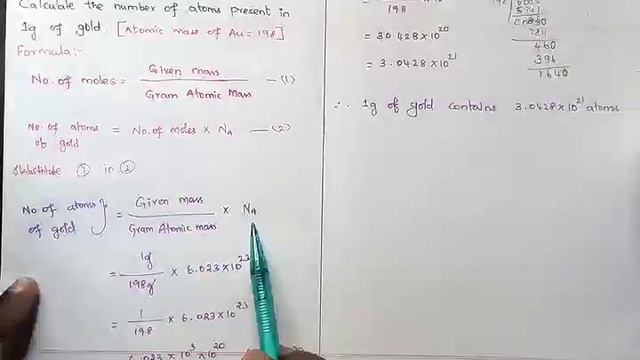 Calculate the number of atoms present in
1g of gold. [Atomic mass of Au = 198]
Formula:-
No. of moles = Given mass / Gram Atomic Mass —(1)
No. of atoms of gold = No. of moles × NA —(2)
Substitute ① in ②
No of atoms of gold } = Given mass / Gram Atomic mass × NA
= 1g / 198g × 6.023×10²³
= 1 / 198 × 6.023×10²³
6.023 × 10³ × 10²⁰
198
= 30.428×10²⁰
= 3.0428×10²¹
460
396
1640
∴ 1g of gold contains 3.0428×10²¹ atoms